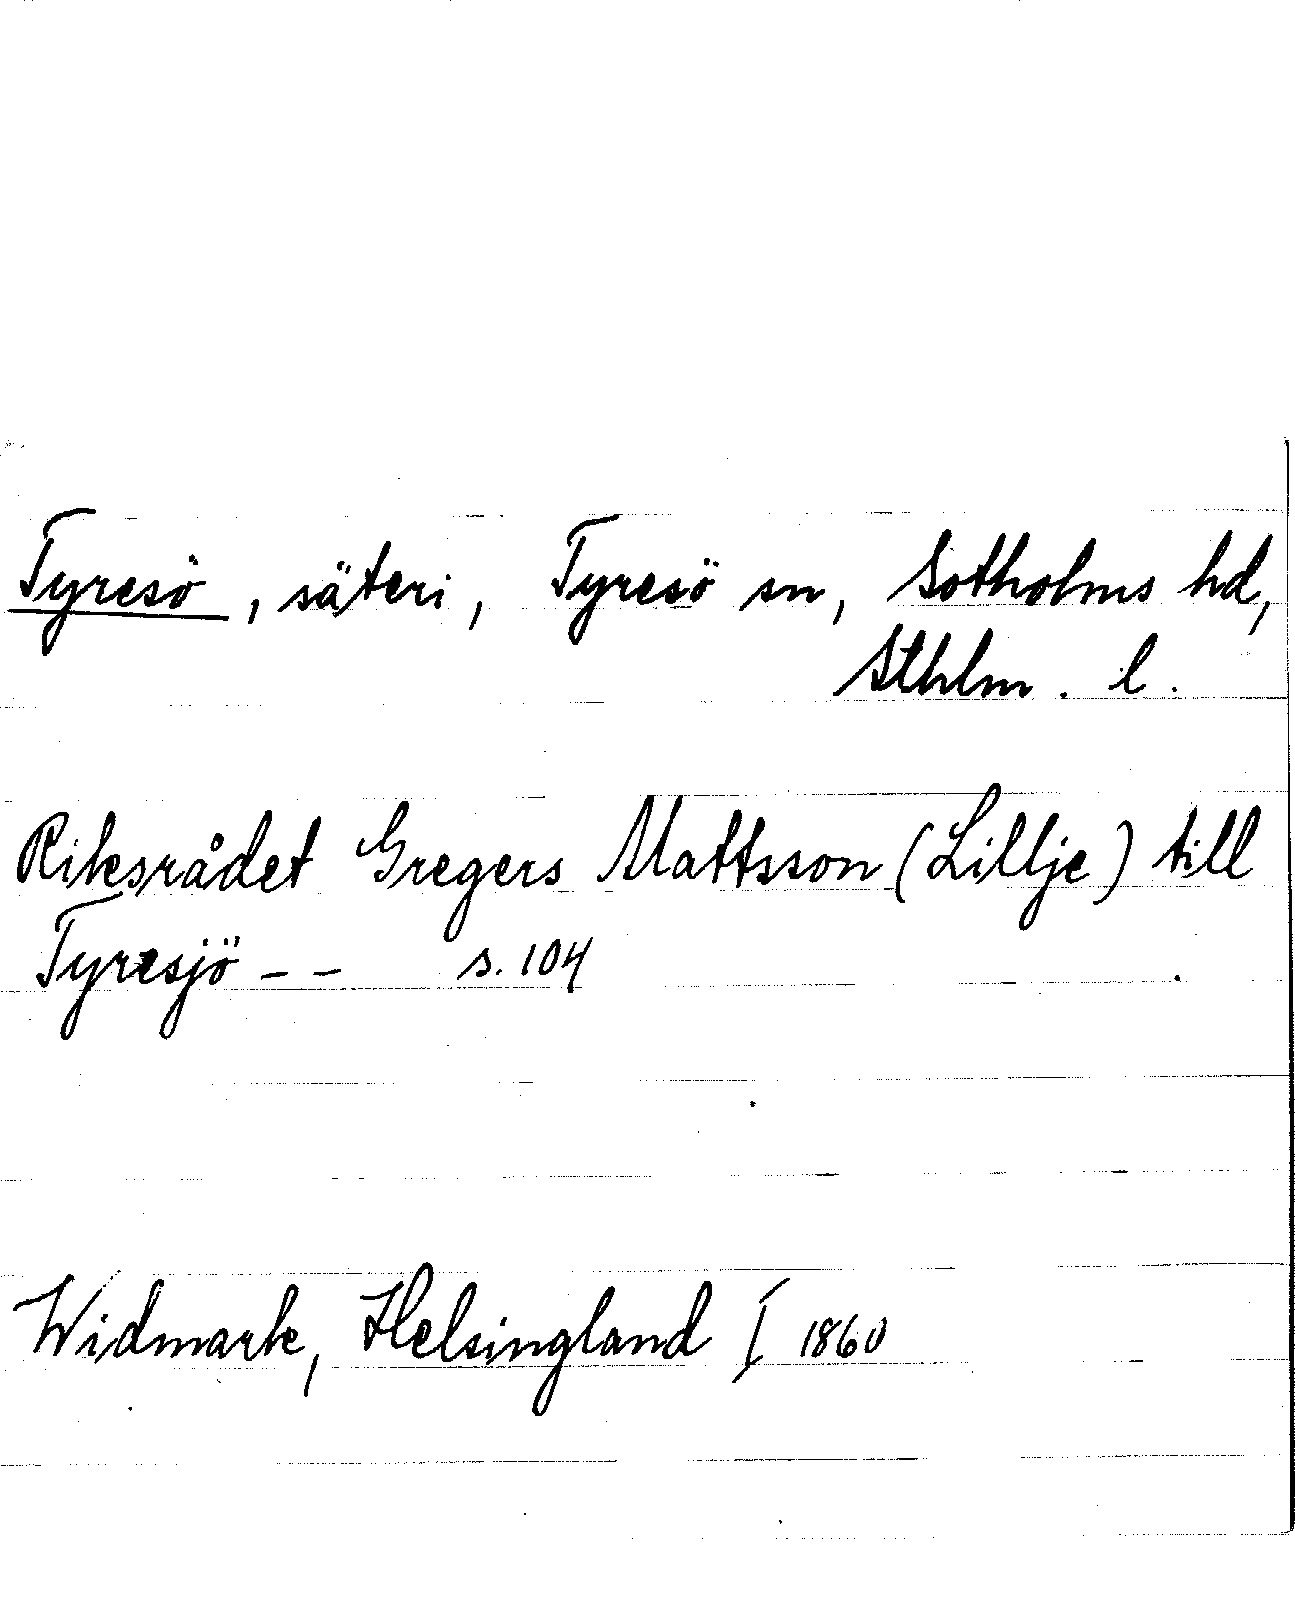 Tyresö, säteri, Tyresö sn, Sotholms hd,
Sthlm. l.
Riksrådet Gregers Mattsson (Lillje) till
Tyresjö – – s. 104
Widmark, Helsingland I 1860